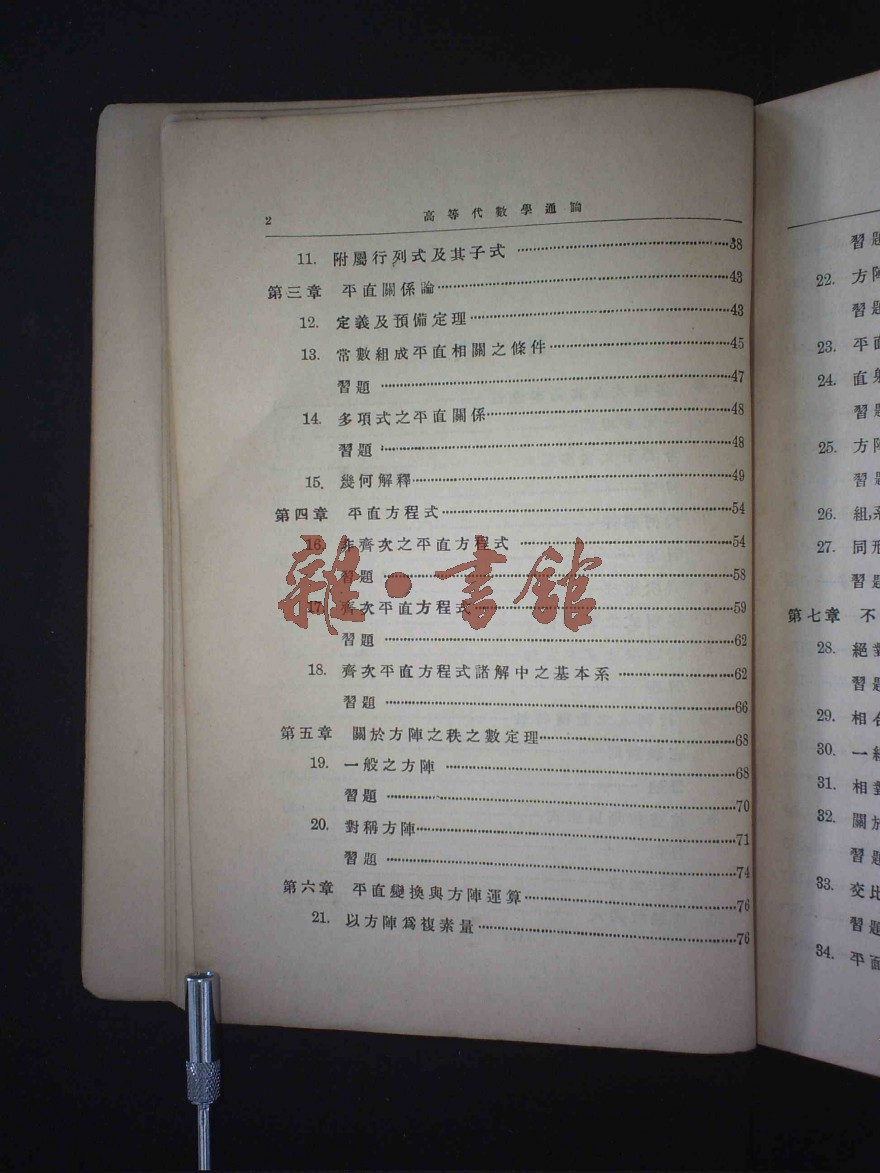 2 高等代數學通論
11. 附屬行列式及其子式 38
第三章 平直關係論 43
12. 定義及預備定理 43
13. 常數組成平直相關之條件 45
習題 47
14. 多項式之平直關係 48
習題 48
15. 幾何解釋 49
第四章 平直方程式 54
16. 非齊次之平直方程式 54
習題 58
17. 齊次平直方程式 59
習題 62
18. 齊次平直方程式諸解中之基本系 62
習題 66
第五章 關於方陣之秩之數定理 68
19. 一般之方陣 68
習題 70
20. 對稱方陣 71
習題 74
第六章 平直變換與方陣運算 76
21. 以方陣爲複素量 76
雜·書館
習題
22. 方陣
習題
23. 平直
24. 直射
習題
25. 方陣
習題
26. 組,系
27. 同形
習題
第七章 不
28. 絕對
習題
29. 相合
30. 一組
31. 相對
32. 關於
習題
33. 交比
習題
34. 平面